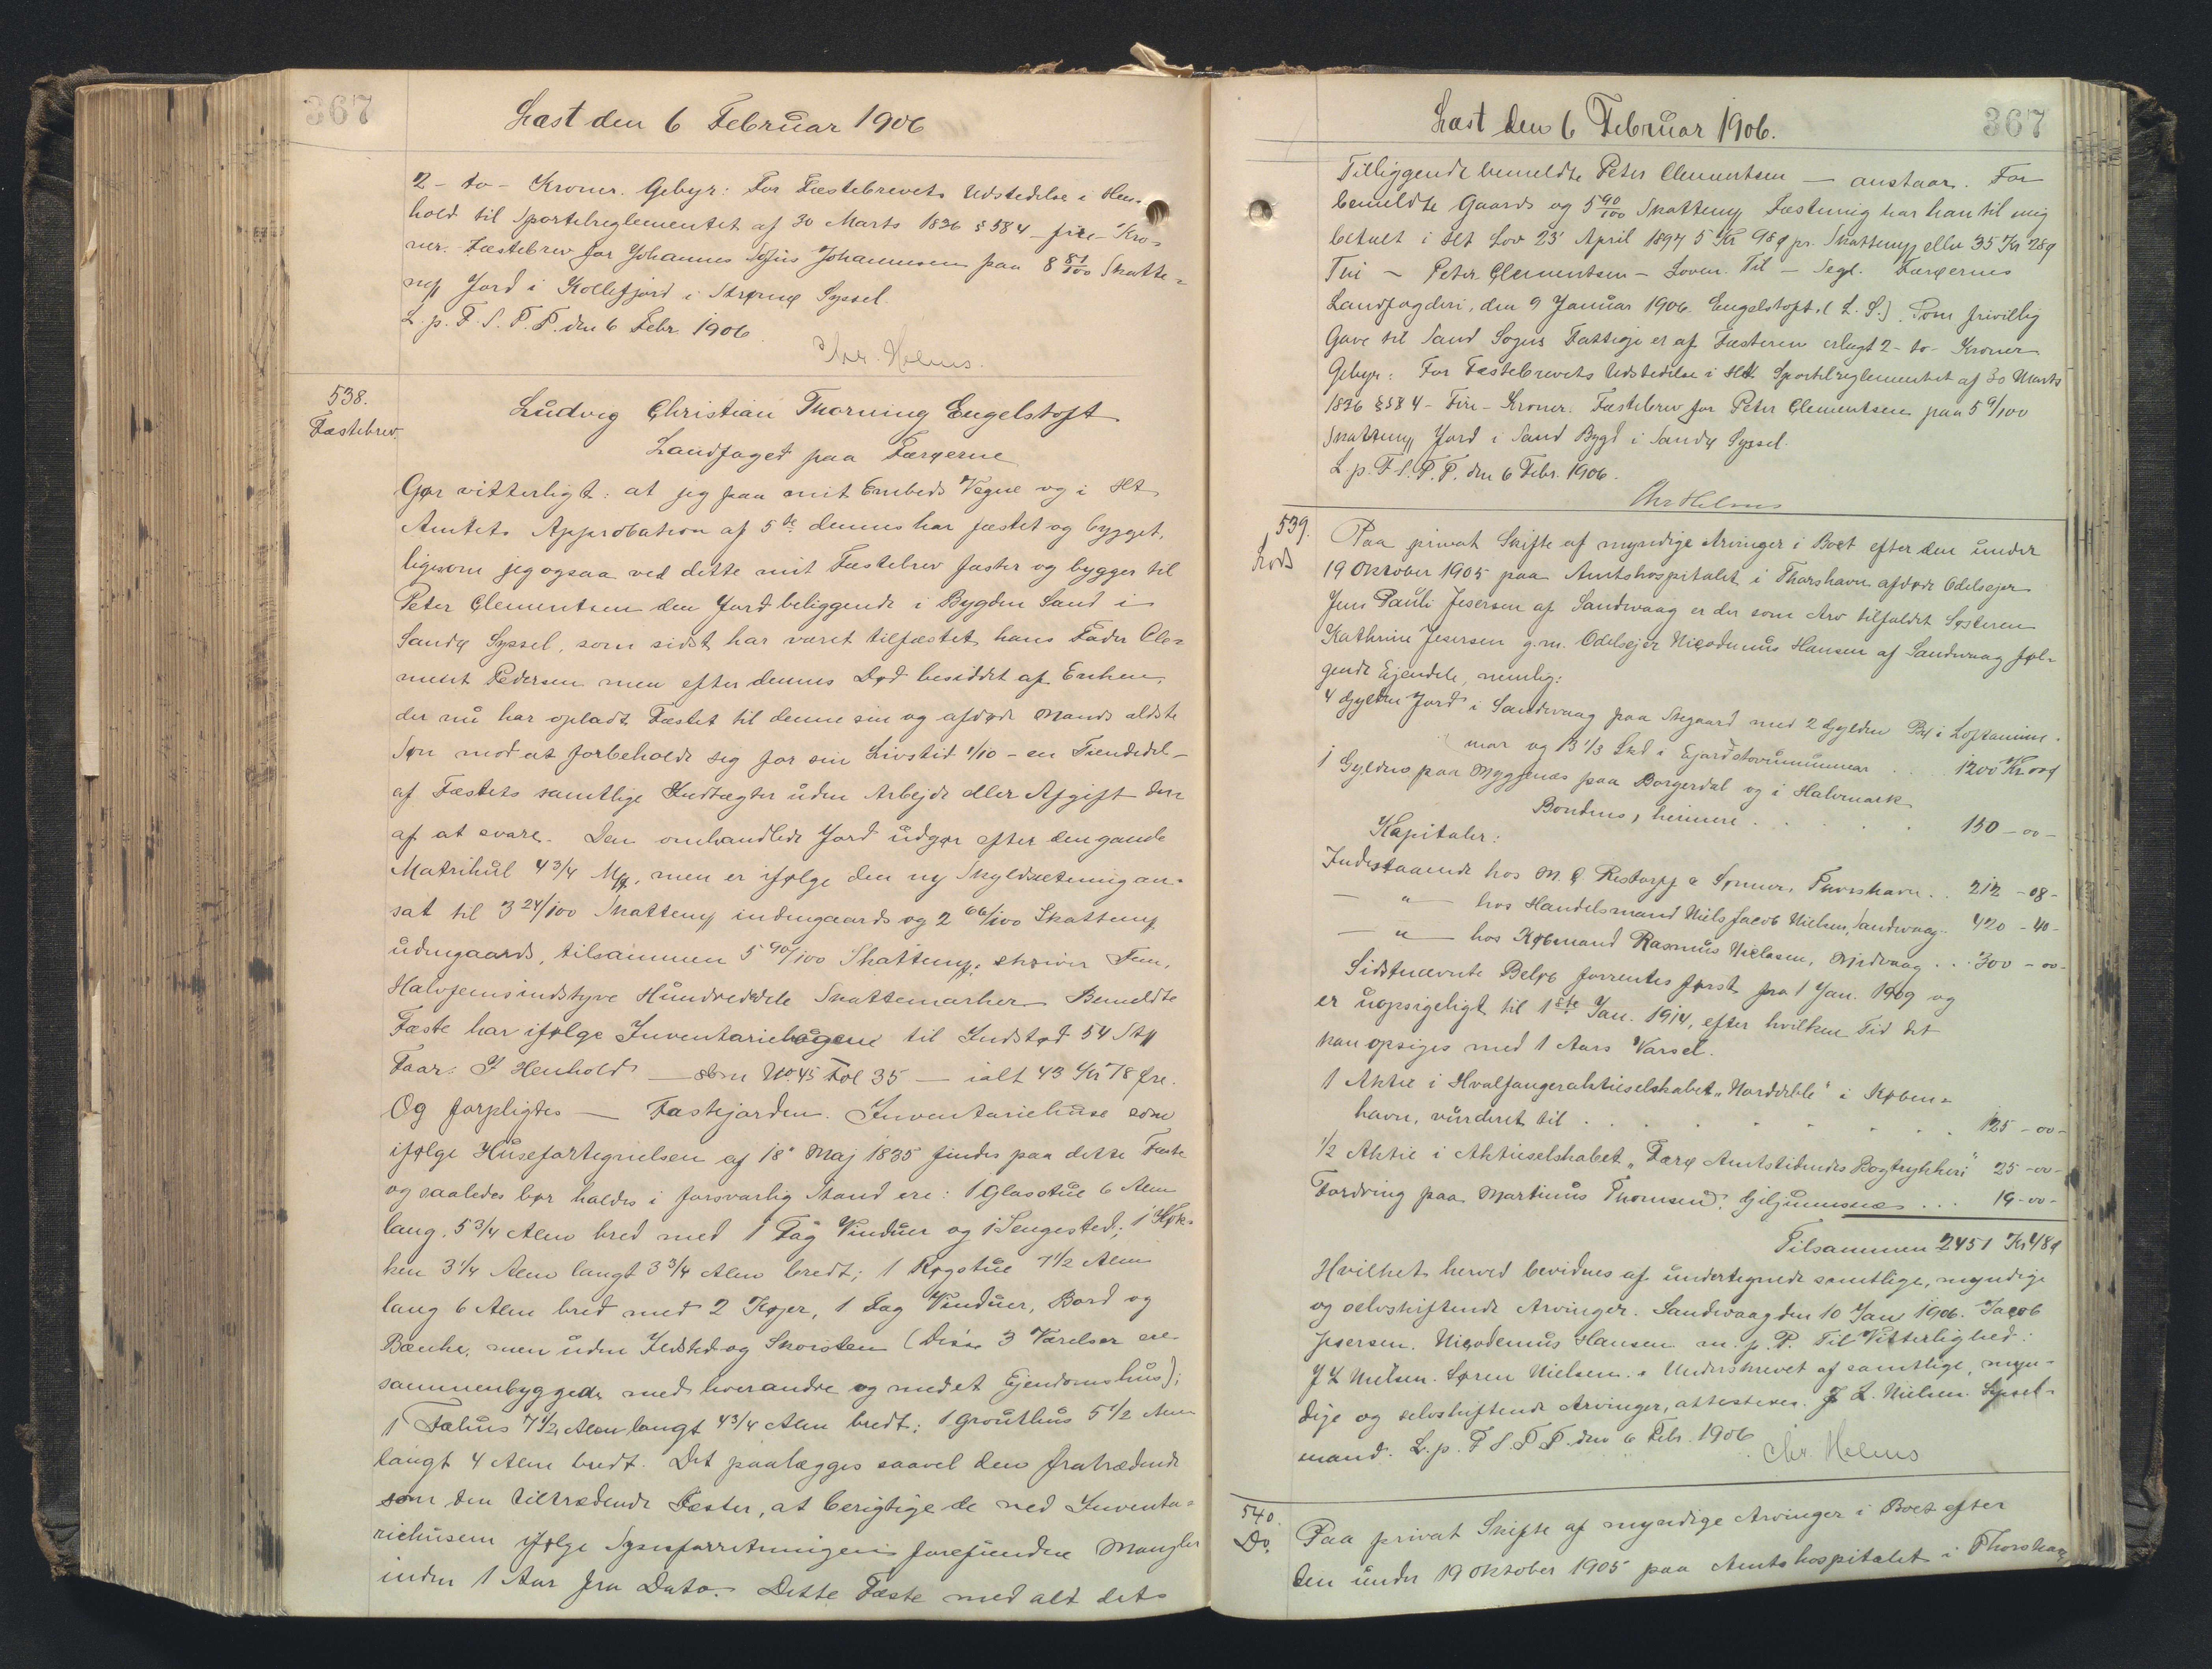 367
Læst den 6 Februar 1906
2 - to - Kroner. Gebyr: For Fæstebrevets Udstedelse i Hen-
hold til Sportelreglementet af 30 Marts 1836 § 58 4 - fire - Kro-
ner. Fæstebrev for Johannes Sofus Johannesen paa 8 81/100 Skatte-
mrk Jord i Kollefjord i Strømø Syssel.
L. p. F. S. T. P. den 6 Febr. 1906
Chr. Holms.
538.
Fæstebrev.
Ludvig Christian Thorning Engelstoft
Landfoged paa Færøerne
Gør vitterligt: at jeg paa mit Embeds Vegne og i Hht
Amtets Approbation af 5te dennes har fæstet og bygget,
ligesom jeg ogsaa ved dette mit Fæstebrev fæster og bygger til
Peter Clementsen den Jord beliggende i Bygden Sand i
Sandø Syssel, som sidst har været tilfæstet hans Fader Cle-
ment Pedersen men efter dennes Død besiddet af Enken,
der nu har opladt Fæstet til denne sin og afdøde Mands ældste
Søn mod at forbeholde sig for sin Livstid 1/10 - en Tiendedel -
af Fæstets samtlige Indtægter uden Arbejde eller Afgift der-
af at svare. Den omhandlede Jord udgør efter den gamle
Matrikul 4 3/4 Mrk, men er ifølge den ny Skyldsætning an-
sat til 3 24/100 Skattemrk indengaards og 2 66/100 Skattemrk
udengaards, tilsammen 5 90/100 Skattemrk; skriver Fem,
Halvfemsindstyve Hundrededele Skattemarker. Bemeldte
Fæste har ifølge Inventariebøgerne til Indstød 54 Stk
Faar. I Henhold — sbm No. 45 Fol 35 — ialt 43 Kr 78 Øre.
Og forpligtes — Fæstejorden. Inventariehuse som
ifølge Husefortegnelsen af 18' Maj 1835 findes paa dette Fæste
og saaledes bør holdes i forsvarlig Stand ere: 1 Glasstue 6 Alen
lang, 5 3/4 Alen bred med 1 Fag Vinduer og 1 Sengested; 1 Køk-
ken 3 1/4 Alen langt 3 3/4 Alen bredt; 1 Røgstue 7 1/2 Alen
lang 6 Alen bred med 2 Køjer, 1 Fag Vinduer, Bord og
Bænke, men uden Ildsted og Skorsten (Disse 3 Værelser ere
sammenbyggede med hverandre og med et Ejendomshus);
1 Fæhus 7 1/2 Alen langt 4 3/4 Alen bredt; 1 Grouthus 5 1/2 Alen
langt 4 Alen bredt. Det paalægges saavel den fratrædende
som den tiltrædende Fæster, at berigtige de ved Inventa-
riehusene ifølge Synsforretningen forefundne Mangler
inden 1 Aar fra Dato. Dette Fæste med alt dets
Læst den 6 Februar 1906.
367
Tilliggende bemeldte Peter Clementsen — anstaar. For
bemeldte Gaards og 5 90/100 Skattemrk Fæstning har han til mig
betalt i Hht Lov 23' April 1897 5 Kr 98 Ø pr. Skattemrk eller 35 Kr 28 Ø
Thi — Peter Clementsen — Loven. Til — Segl. Færøernes
Landfogderi, den 9 Januar 1906. Engelstoft. (L. S.). Som frivillig
Gave til Sand Sogns Fattige er af Fæsteren erlagt 2 - to - Kroner
Gebyr: For Fæstebrevets Udstedelse i Hht Sportelreglementet af 30 Marts
1836 § 58 4 - Fire - Kroner. Fæstebrev for Peter Clementsen paa 5 9/100
Skattemrk Jord i Sand Bygd i Sandø Syssel.
L. p. F. S. T. P. den 6 Febr. 1906.
Chr Holms
539.
Lods
Paa privat Skifte af myndige Arvinger i Boet efter den under
19 Oktober 1905 paa Amtshospitalet i Thorshavn afdøde Odelsejer
Jens Pauli Joensen af Sandevaag er der som Arv tilfaldet Søsteren
Kathrine Joensen g.m. Odelsejer Nicodemus Hansen af Sandevaag føl-
gende Ejendele, nemlig:
4 Gylden Jord i Sandevaag paa Skegaard med 2 Gylden Bø i Loftanum-
mar og 13 1/3 Skd i Gjardstovunummar . . . 1200 Kr 00 Ø
1 Gylden paa Myggenæs paa Borgerdal og i Halvmark
Bondens, heimere . . . 150 - 00 -
Kapitaler:
Indestaaende hos M. C. Restorff & Sønner, Thorshavn . . 212 - 08 -
— " — hos Handelsmand Niels Jacob Nielsen, Sandevaag 420 - 40 -
— " — hos Købmand Rasmus Niclasen, Midvaag . . . 300 - 00 -
Sidstnævnte Beløb forrentes først fra 1 Jan. 1909 og
er uopsigeligt til 1ste Jan. 1914, efter hvilken Tid det
kan opsiges med 1 Aars Varsel.
1 Aktie i Hvalfangeraktieselskabet „Norddeble" i Køben-
havn, vurderet til . . . 125 - 00 -
1/2 Aktie i Aktieselskabet „Færø Amtstidendes Bogtrykkeri" 25 - 00 -
Fordring paa Martinus Thomsen, Giljumnæs . . . 19 - 00 -
Tilsammen 2451 Kr 48 Ø
Hvilket herved bevidnes af undertegnede samtlige, myndige
og selvskiftende Arvinger. Sandevaag den 10 Jan 1906. Jacob
Joensen. Nicodemus Hansen m. p. P. Til Vitterlighed:
J L Nielsen. Søren Nielsen. Underskrevet af samtlige, myn-
dige og selvskiftende Arvinger, attesteres. J. L. Nielsen. Syssel-
mand. L. p. F. S. T. P. den 6 Febr. 1906
Chr Holms
540.
Do.
Paa privat Skifte af myndige Arvinger i Boet efter
den under 19 Oktober 1905 paa Amtshospitalet i Thorshavn